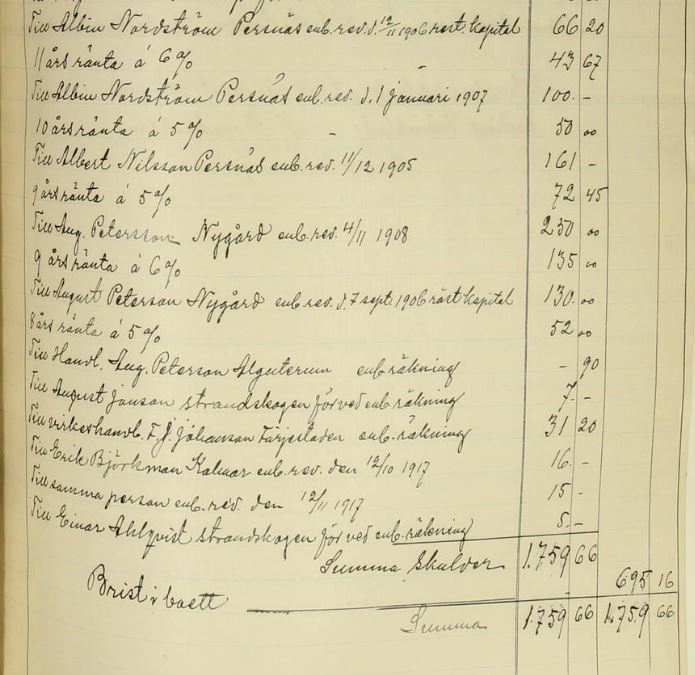 Till Albin Nordström Persnäs enl. rev. d. 12/11 1906 rest. kapital 66 20
11 års ränta á 6 % 43 67
Till Albin Nordström Persnäs enl. rev. d. 1 Januari 1907 100 -
10 års ränta á 5 % - 50 00
Till Albert Nilsson Persnäs enl. rev. 11/12 1905 161 -
9 års ränta á 5 % 72 45
Till Aug. Petersson Nygård enl. rev. 4/11 1908 250 00
9 års ränta á 6 % 135 00
Till August Peterson Nygård enl. rev. d. 7 sept. 1906 räst kapital 130 00
8 års ränta á 5 % 52 00
Till Handl. Aug. Peterson Algutsrum enl räkning - 90
Till August Jonson Strandskogen för ved enl räkning 7 -
Till virkeshandl. F. J. Johanson Färjestaden enl. räkning 31 20
Till Erik Björkman Kalmar enl. rev. den 12/10 1917 16 -
Till samma person enl. rev. den 12/11 1917 15 -
Till Einar Ahlqvist strandskogen för ved enl. räkning 5 -
Summa Skulder 1.759 66
Brist i boett 695 16
Summa 1.759 66 1.759 66